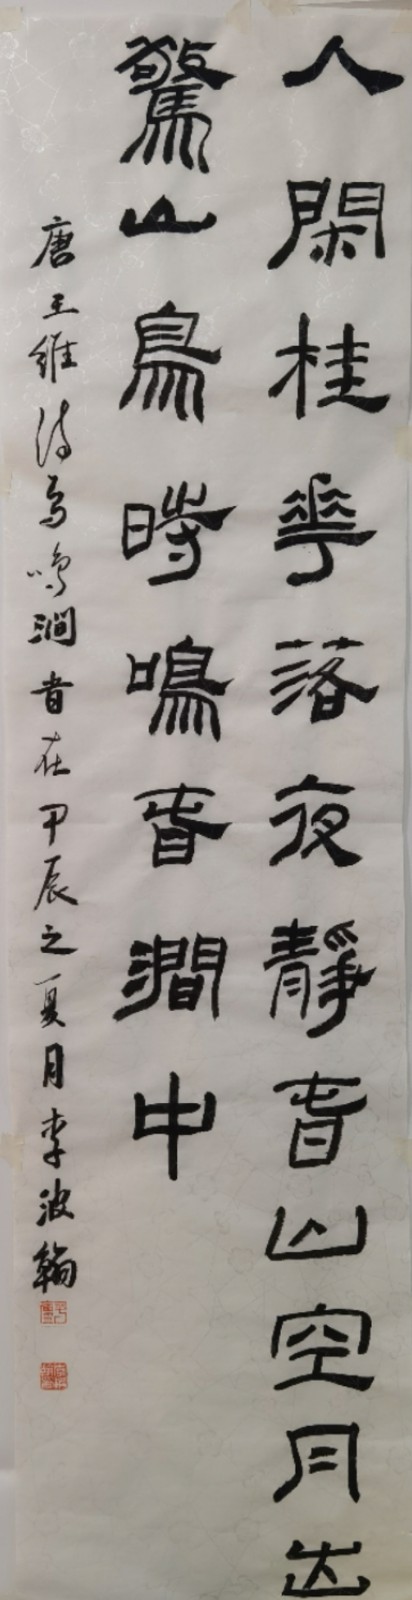 人閑桂華落夜靜春山空月出
驚山鳥時鳴春澗中
唐王維诗鸟鳴澗旹在甲辰之夏月李波翰